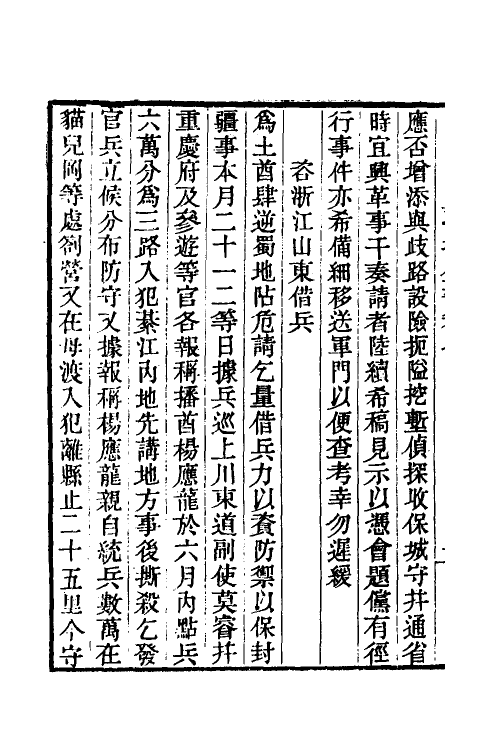 應否增添與歧路設險扼隘挖塹偵探收保城守幷通省
時宜興革事干奏請者陸續希稿見示以憑會題儻有徑
行事件亦希備細移送軍門以便查考幸勿遲緩
咨浙江山東借兵
爲土酋肆逆蜀地阽危請乞量借兵力以資防禦以保封
疆事本月二十一二等日據兵巡上川東道副使莫睿幷
重慶府及參遊等官各報稱播酋楊應龍於六月內點兵
六萬分爲三路入犯綦江內地先講地方事後撕殺乞發
官兵立候分布防守又據報稱楊應龍親自統兵數萬在
貓兒岡等處劄營又在母渡入犯離縣止二十五里今守